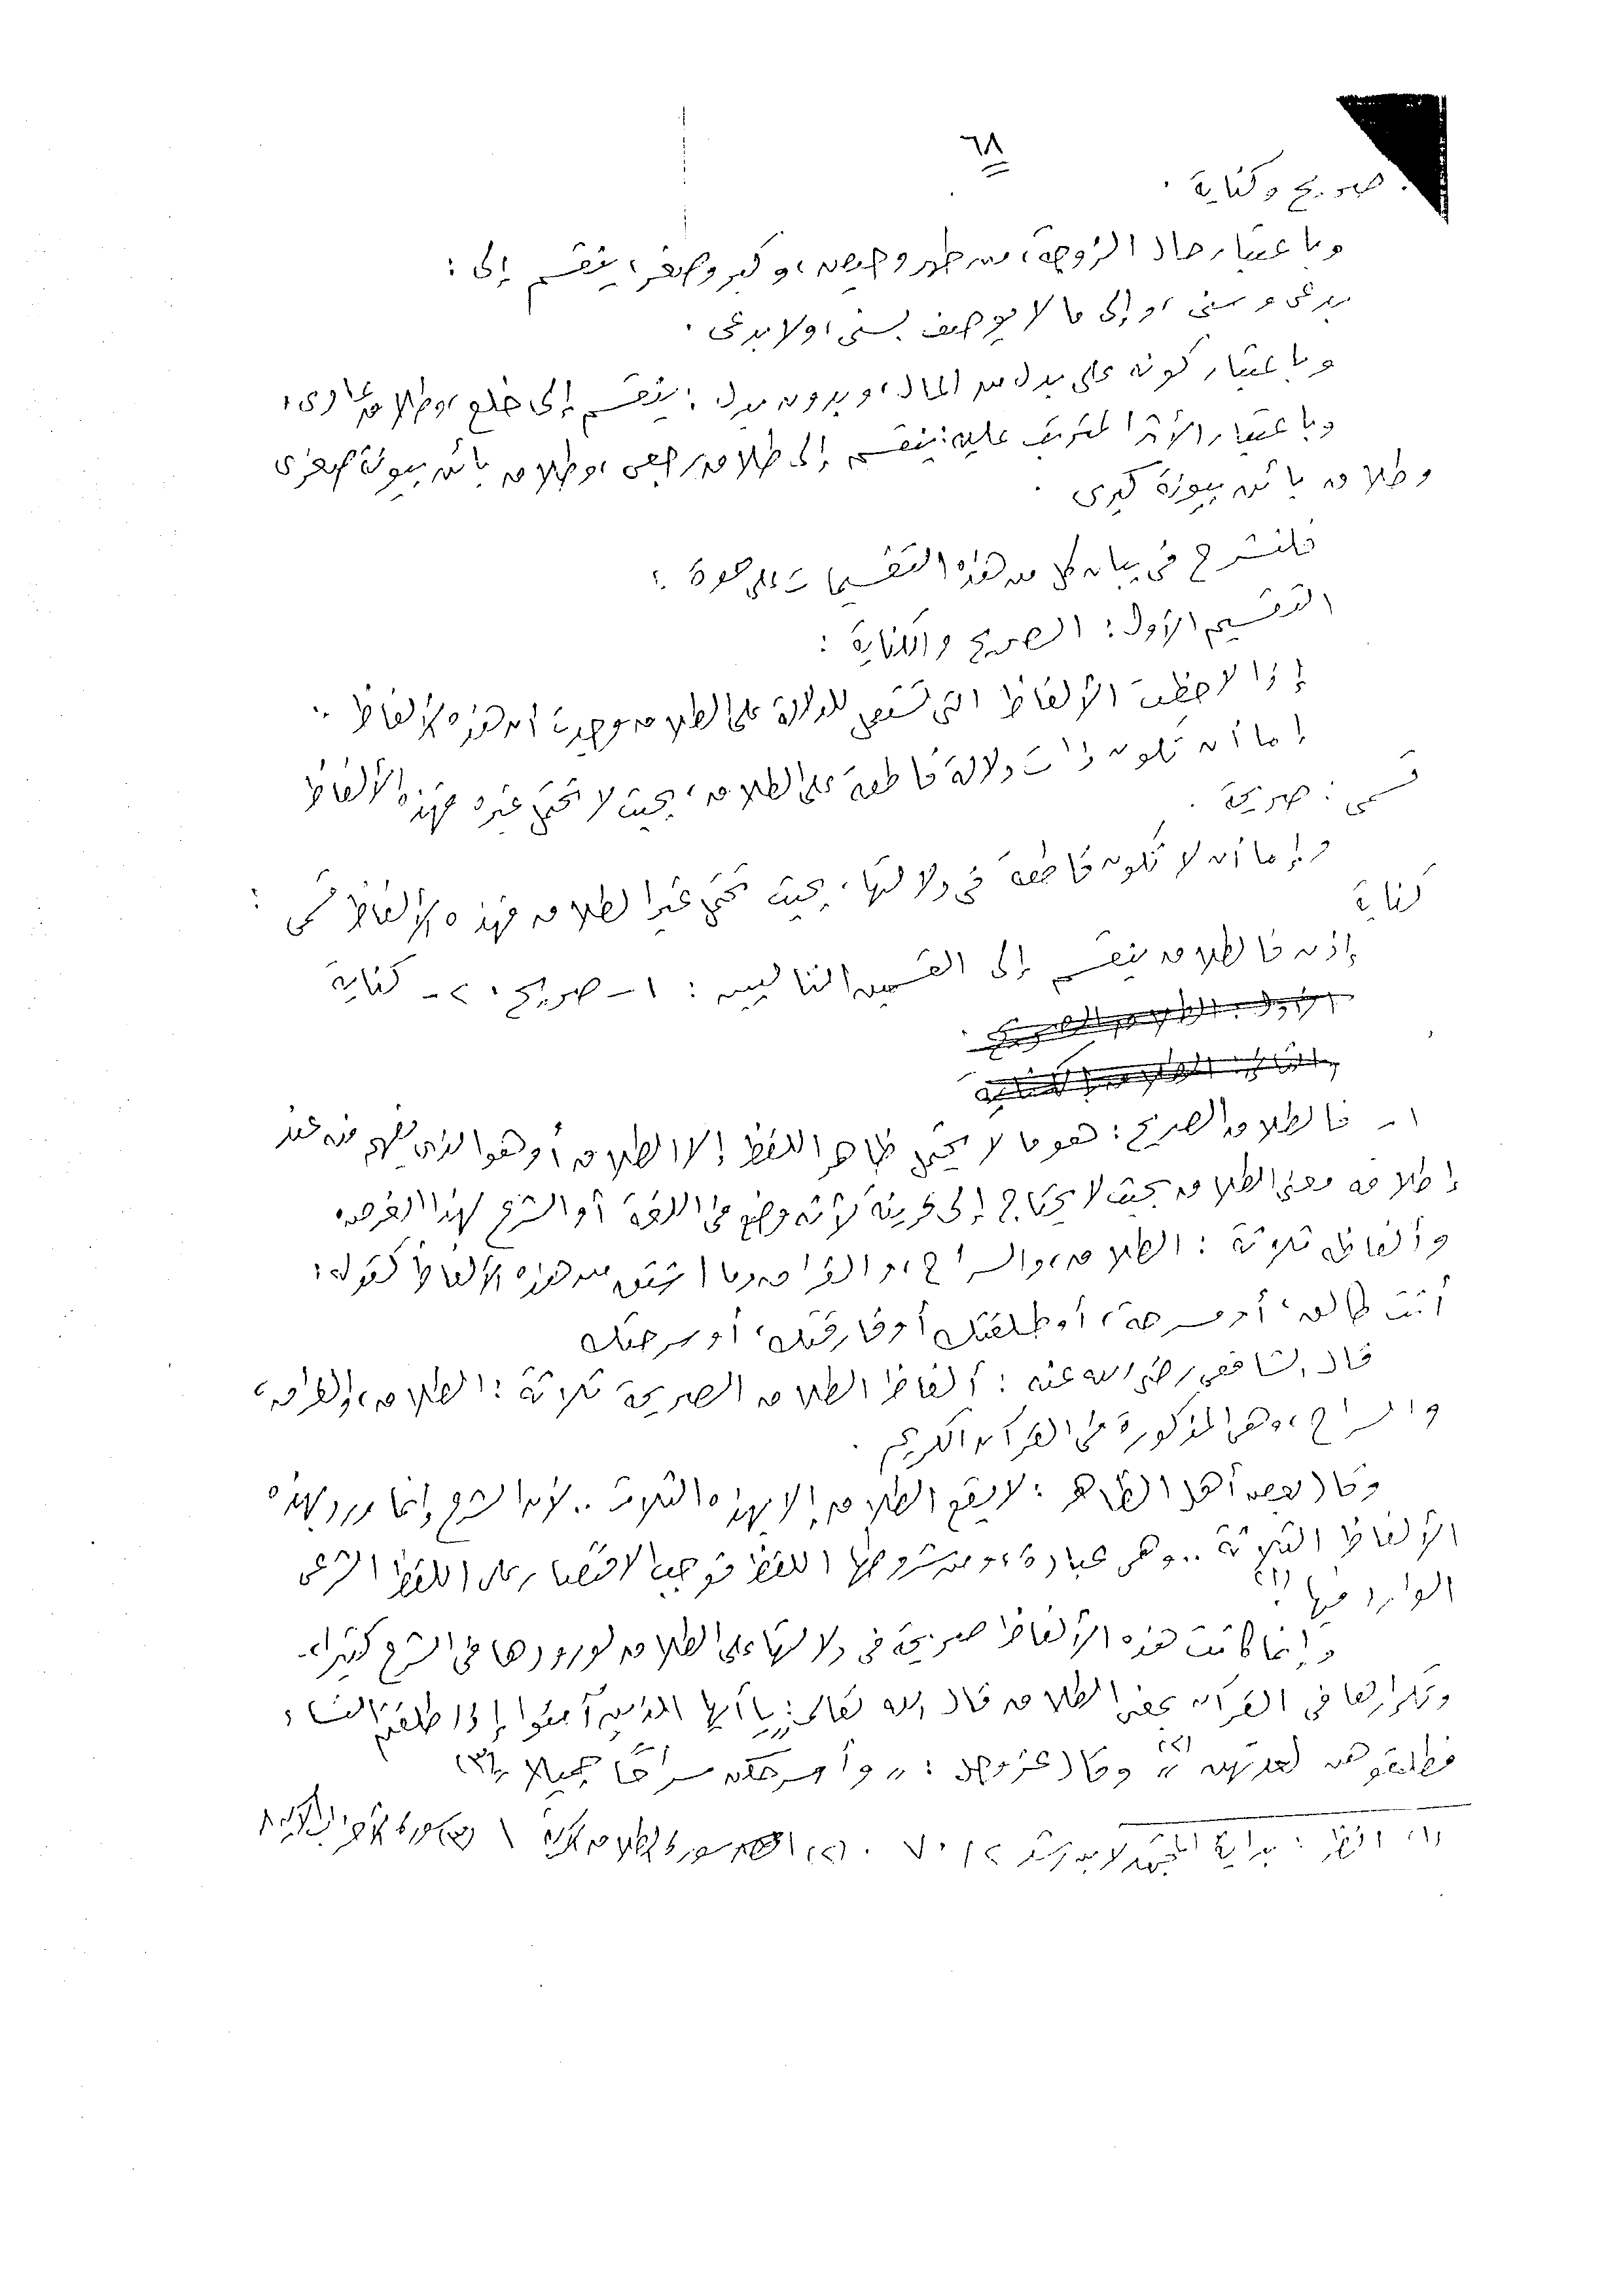 ٦٨
صريح وكناية .
وباعتبار حال الزوجة، من طهر وحيض، وكبر وصغر، ينقسم إلى :
بدعى وسنى ، وإلى ما لا يوصف بسنى ، ولا بدعى .
وباعتبار كونه على بدل من المال، وبدون بدل : ينقسم إلى خلع ، وطلاق عادى ،
وباعتبار الأثر المترتب عليه : ينقسم إلى طلاق رجعى ، وطلاق بائن بينونة صغرى
وطلاق بائن بينونة كبرى .
فلنشرح فى بيان كل من هذه التقسيمات على حدة :
التقسيم الأول : الصريح والكناية :
إذا لاحظت الألفاظ التى تستعمل للدلالة على الطلاق وجدت أن هذه الألفاظ :
إما أن تكون ذات دلالة قاطعة على الطلاق ، بحيث لا تحتمل غيره فهذه الألفاظ
تسمى : صريحة .
وإما أن لا تكون قاطعة فى دلالتها ، بحيث تحتمل غير الطلاق فهذه الألفاظ تسمى :
كناية
إذن فالطلاق ينقسم إلى القسمين التاليين : ١ - صريح . ٢ - كناية
١ - فالطلاق الصريح : هو ما لا يحتمل ظاهر اللفظ إلا الطلاق ، أو هو الذى يفهم منه عند
إطلاقه معنى الطلاق بحيث لا يحتاج إلى قرينة لأنه وضع فى اللغة أو الشرع لهذا الغرض ،
وألفاظه ثلاثة : الطلاق ، والسراح ، والفراق وما اشتق من هذه الألفاظ كقوله :
أنت طالق ، أو مسرحة ، أو طلقتك أو فارقتك ، أو سرحتك
قال الشافعى رضى الله عنه : ألفاظ الطلاق الصريحة ثلاثة : الطلاق ، والفراق ،
والسراح ، وهى المذكورة فى القرآن الكريم .
وقال بعض أهل الظاهر : لا يقع الطلاق إلا بهذه الثلاث .. لأن الشرع إنما ورد بهذه
الألفاظ الثلاثة .. وهى عبادة ، ومن شروطها اللفظ فوجب الاقتصار على اللفظ الشرعى
الوارد فيها (١) .
وإنما كانت هذه الألفاظ صريحة فى دلالتها على الطلاق لورودها فى الشرع كثيرا ،
وتكرارها فى القرآن بمعنى الطلاق قال الله تعالى : " يا أيها الذين آمنوا إذا طلقتم النساء
فطلقوهن لعدتهن " (٢) وقال عز وجل : " وأسرحكن سراحًا جميلا " (٣)
(١) انظر : بداية المجتهد لابن رشد ٢ / ٧٠ . (٢) سورة الطلاق